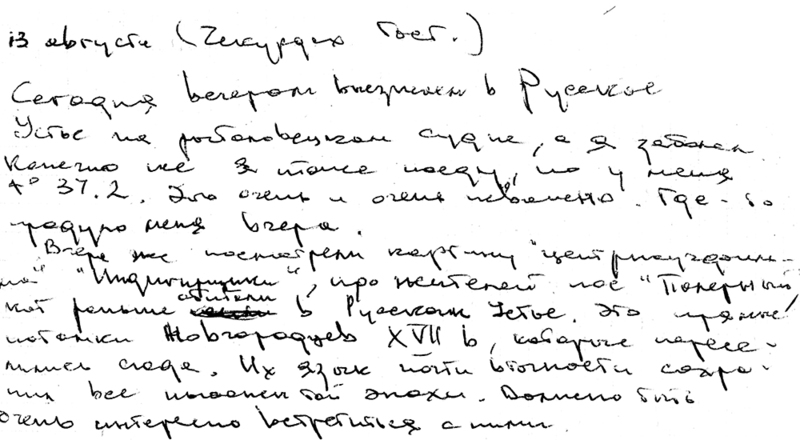 13 августа (Чекурдах гост.)
Сегодня вечером выезжаем в Русское
Устье на рыболовецком судне, а я заболел
Конечно же я тоже поеду, но у меня
t° 37.2. Это очень и очень Где-то
продуло меня вчера.
Вчера же посмотрели картину "центрнаучфиль-
ма" "Индигирщики", про жителей пос "Полярный",
кот раньше обитали в Русском Устье. Это прямые
потомки Новгородцев XVII в, которые пересе-
лились сюда. Их язык почти вточности сохра-
нил все той эпохи. Должно быть
очень интересно встретиться с ними.